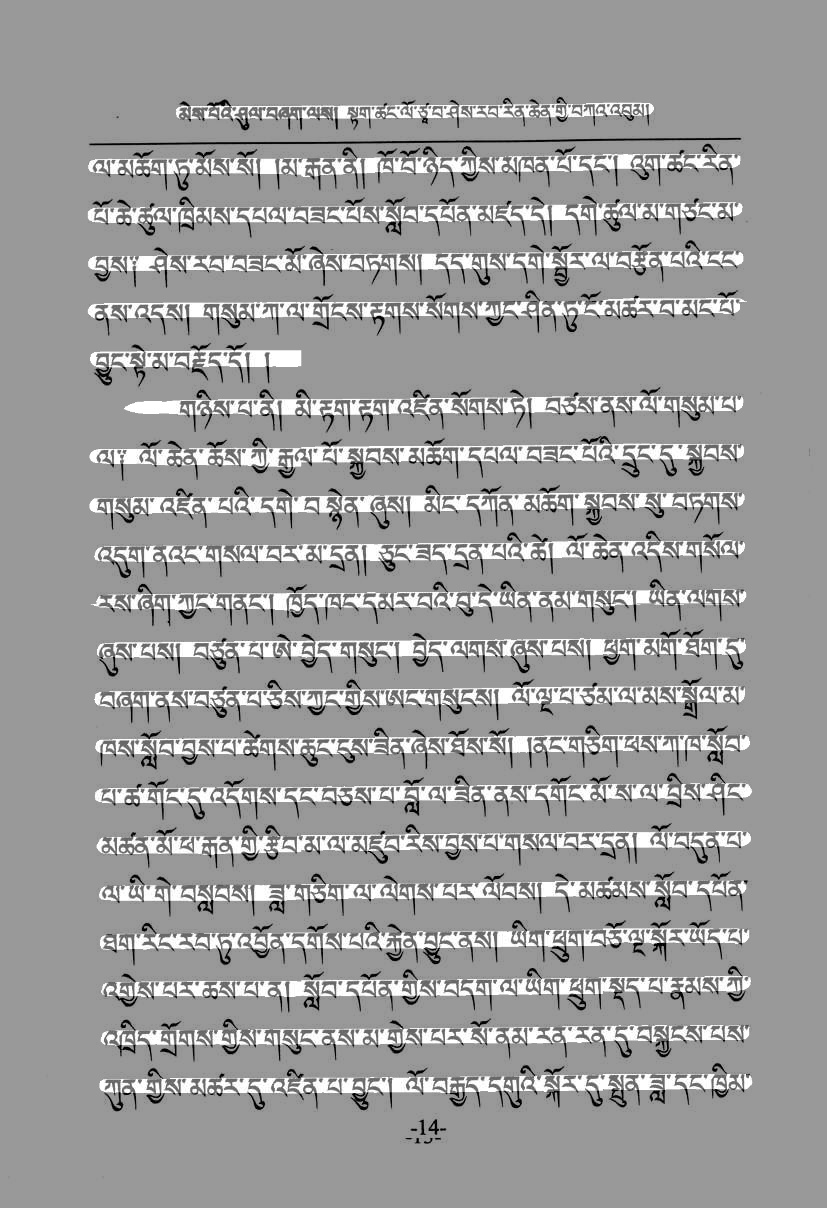 མེས་པོའི་ཤུལ་བཞག་ལས། སྟག་ཚང་ལོ་ཙཱ་བ་ཤེས་རབ་རིན་ཆེན་གྱི་བཀའ་འབུམ།
ལ་མཆོག་ཏུ་མོས་སོ། །མ་རྒན་ནི། ཁོ་བོ་ཉིད་ཀྱིས་མཁན་པོ་དང་། འུག་ཚང་རིན་
པོ་ཆེ་ཚུལ་ཁྲིམས་དཔལ་བཟང་པོས་སློབ་དཔོན་མཛད་དེ། དགེ་ཚུལ་མ་གཙང་མ་
བྱས༑ ཤེས་རབ་བཟང་མོ་ཞེས་བཏགས། དད་གུས་དགེ་སྦྱོར་ལ་བརྩོན་པའི་ངང་
ནས་འདས། གསུམ་ཀ་ལ་གྲོངས་རྟགས་སོགས་ཀྱང་ཤིན་ཏུ་ངོ་མཚར་བ་མང་པོ་
བྱུང་སྟེ་མ་བརྗོད་དོ། །
གཉིས་པ་ནི། མི་རྟག་རྟག་འཛིན་སོགས་ཏེ། བཙས་ནས་ལོ་གསུམ་པ་
ལ༑ ལོ་ཆེན་ཆོས་ཀྱི་རྒྱལ་པོ་སྐྱབས་མཆོག་དཔལ་བཟང་པོའི་དྲུང་དུ་སྐྱབས་
གསུམ་འཛིན་པའི་དགེ་བསྙེན་ཞུས། མིང་དཀོན་མཆོག་སྐྱབས་སུ་བཏགས་
འདུག་ནའང་གསལ་བར་མ་དྲན། ཅུང་ཟད་དྲན་པའི་ཚེ། ལོ་ཆེན་འདིས་གསོལ་
རས་ཞིག་ཀྱང་གནང་། ཁྱོད་ཁང་དམར་བའི་བུ་དེ་ཡིན་ནམ་གསུང་། ཡིན་ལགས་
ཞུས་པས། བཙུན་པ་ཨེ་བྱེད་གསུང་། བྱེད་ལགས་ཞུས་པས། ཕྱག་མགོ་ཐོག་དུ་
བཞག་ནས་བཙུན་པ་ཅིས་ཀྱང་གྱིས་ཨང་གསུངས། ལོ་ལྔ་པ་ཙམ་ལ་མས་སྒྲོལ་མ་
ཁས་སློབ་བྱས་པ་ཚེགས་ཆུང་ངུས་ཟིན་ཞེས་ཐོས་སོ། །ནང་གཅིག་ཕས་ཀ་ཁ་སློབ་
པ་ཚ་གོང་དུ་འདོགས་དང་བཅས་པ་བློ་ལ་ཟིན་ནས་དགོང་མོ་ས་ལ་བྲིས་ཤིང་
མཚན་མོ་ཕ་རྒན་གྱི་རྩིབ་མ་ལ་མཛུབ་རིས་བྱས་པ་གསལ་བར་དྲན། ལོ་བདུན་པ་
ལ་ཡི་གེ་བསླབས། ཟླ་གཅིག་ལ་ལེགས་པར་ལོབས། དེ་མཚམས་སློབ་དཔོན་
ཐག་རིང་རབ་ཏུ་འབྱོན་དགོས་པའི་རྐྱེན་བྱུང་ནས། ཡིག་ཕྲུག་བཅོ་ལྔ་སྐོར་ཡོད་པ་
འགྱེས་པར་ཆས་པ་ན། སློབ་དཔོན་གྱིས་བདག་ལ་ཡིག་ཕྲུག་སྡད་པ་རྣམས་ཀྱི་
འཁྲིད་གྲོགས་གྱིས་གསུང་ནས་མ་གྱེས་པར་སོ་ནམ་རན་རན་དུ་བསྐྱངས་པས་
ཀུན་གྱིས་མཚར་དུ་འཛིན་པ་བྱུང་། ལོ་བརྒྱད་དགུའི་སྐོར་དུ་སྤུན་ཟླ་དང་ཁྱིམ་
-14-